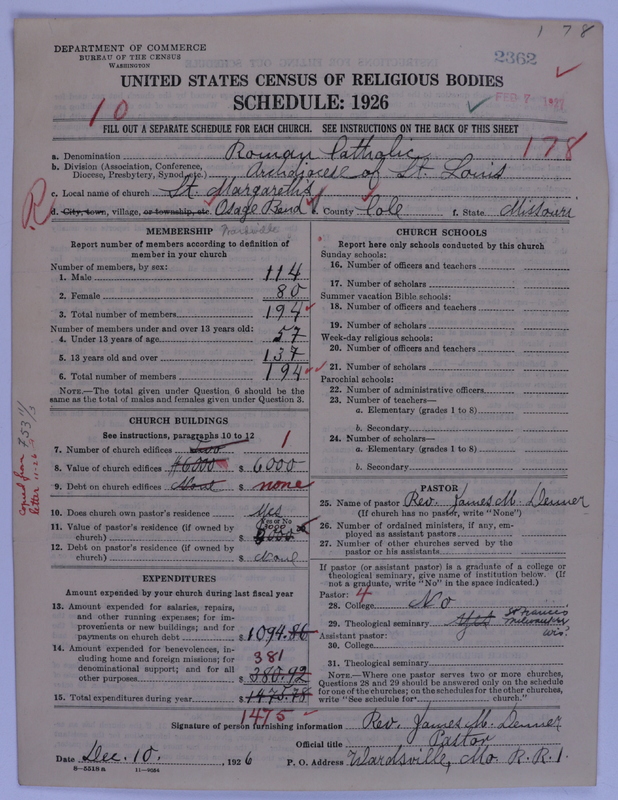 1 78
DEPARTMENT OF COMMERCE
BUREAU OF THE CENSUS
WASHINGTON
2362
UNITED STATES CENSUS OF RELIGIOUS BODIES
SCHEDULE: 1926
FEB 7- 1927
10
FILL OUT A SEPARATE SCHEDULE FOR EACH CHURCH. SEE INSTRUCTIONS ON THE BACK OF THIS SHEET
178
a. Denomination Roman Catholic
b. Division (Association, Conference, Diocese, Presbytery, Synod, etc.) Archdiocese of St. Louis
c. Local name of church St. Margareths
R
d. City, town, village, or township, etc. Osage Bend e. County Cole f. State Missouri
MEMBERSHIP Wardsville
Report number of members according to definition of
member in your church
Number of members, by sex:
1. Male 114
2. Female 80
3. Total number of members 194
Number of members under and over 13 years old:
4. Under 13 years of age 57
5. 13 years old and over 137
6. Total number of members 194
NOTE.—The total given under Question 6 should be the
same as the total of males and females given under Question 3.
CHURCH BUILDINGS
See instructions, paragraphs 10 to 12
7. Number of church edifices Two 1
8. Value of church edifices $6000 $ 6000
9. Debt on church edifices None $ none
copied from 753 11/
letter 11-26
10. Does church own pastor's residence Yes
Yes or No
11. Value of pastor's residence (if owned by
church) $ 3000
12. Debt on pastor's residence (if owned by
church) $ None
EXPENDITURES
Amount expended by your church during last fiscal year
13. Amount expended for salaries, repairs,
and other running expenses; for im-
provements or new buildings; and for
payments on church debt $ 1094.86
14. Amount expended for benevolences, in-
cluding home and foreign missions; for 381
denominational support; and for all
other purposes $ 380.92
15. Total expenditures during year $ 1475.78
1475
CHURCH SCHOOLS
Report here only schools conducted by this church
Sunday schools:
16. Number of officers and teachers
17. Number of scholars
Summer vacation Bible schools:
18. Number of officers and teachers
19. Number of scholars
Week-day religious schools:
20. Number of officers and teachers
21. Number of scholars
Parochial schools:
22. Number of administrative officers
23. Number of teachers—
a. Elementary (grades 1 to 8)
b. Secondary
24. Number of scholars—
a. Elementary (grades 1 to 8)
b. Secondary
PASTOR
25. Name of pastor Rev. James M. Denner
(If church has no pastor, write "None")
26. Number of ordained ministers, if any, em-
ployed as assistant pastors
27. Number of other churches served by the
pastor or his assistants
If pastor (or assistant pastor) is a graduate of a college or
theological seminary, give name of institution below. (If
not a graduate, write "No" in the space indicated.)
Pastor: 4
28. College No
29. Theological seminary Yes St Francis Milwaukee Wis.
Assistant pastor:
30. College
31. Theological seminary
NOTE.—Where one pastor serves two or more churches,
Questions 28 and 29 should be answered only on the schedule
for one of the churches; on the schedules for the other churches,
write "See schedule for church."
Signature of person furnishing information Rev. James M. Denner
Official title Pastor
Date Dec. 10, 1926 P. O. Address Wardsville, Mo. R. R. 1.
8—5518a 11—9024